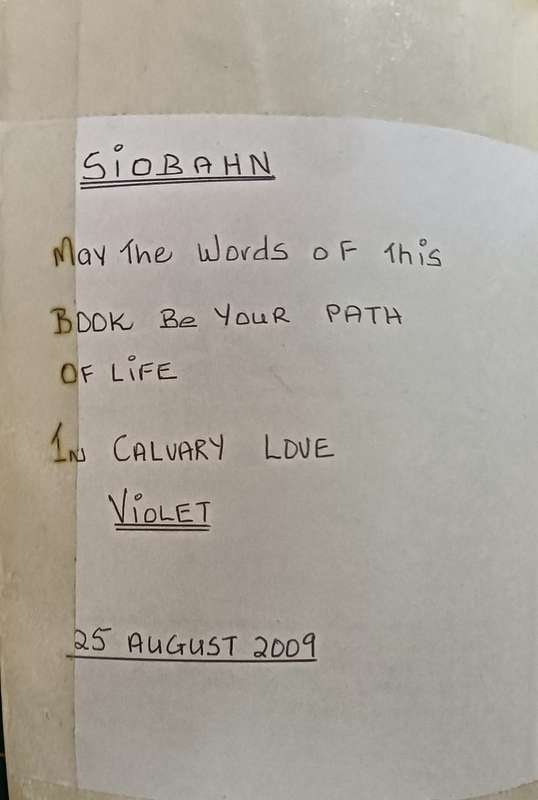 SiOBAHN
May The Words OF This
BOOK Be YOUR PATH
OF LiFE
In CALVARY LOVE
ViOLET
25 AUGUST 2009